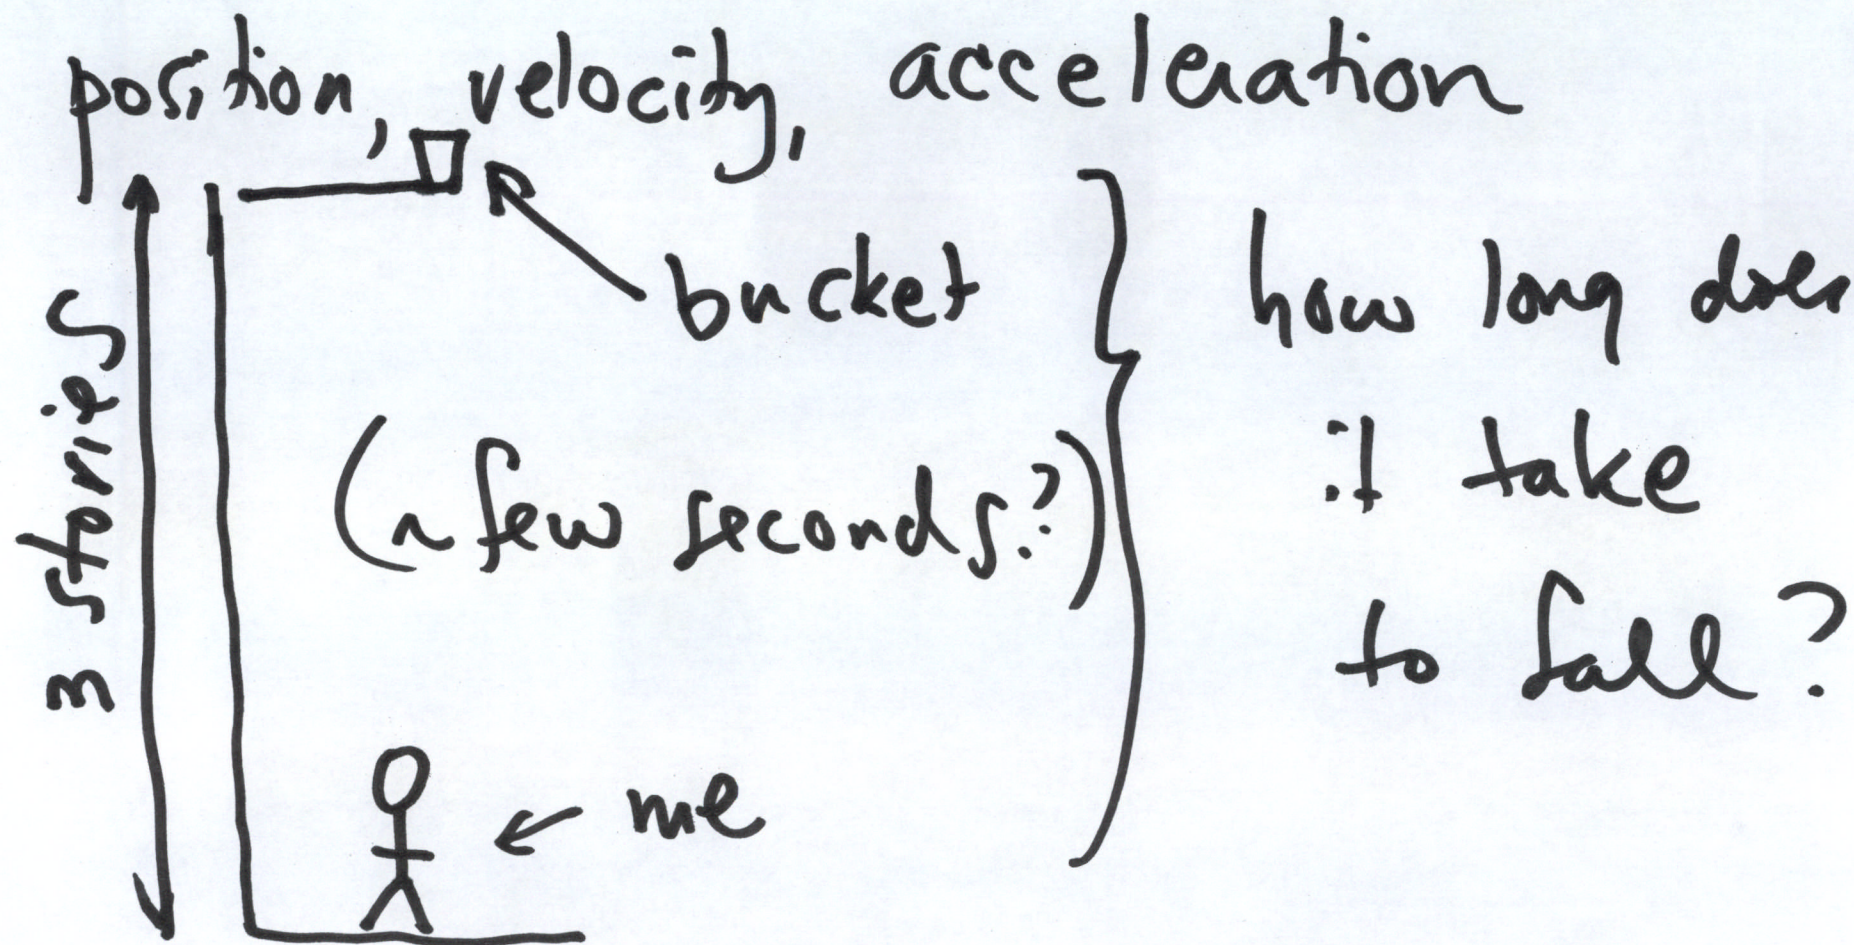 position, velocity, acceleration
3 stories
bucket
(~ few seconds?)
me
how long does
it take
to fall?